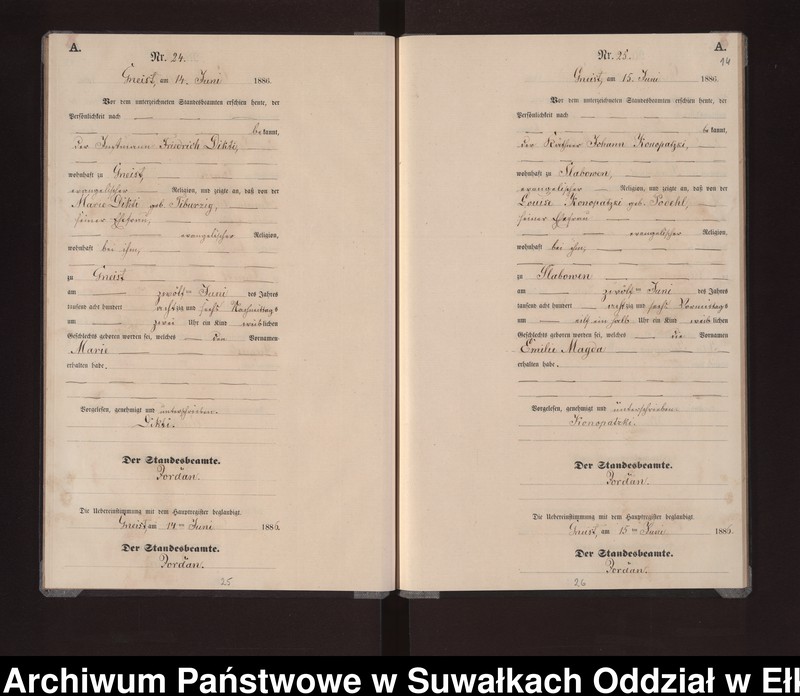 A.
Nr. 24.
Gneist, am 14. Juni 1886.
Vor dem unterzeichneten Standesbeamten erschien heute, der
Persönlichkeit nach
bekannt,
der Instmann Friedrich Diksi,
wohnhaft zu Gneist,
evangelischer Religion, und zeigte an, daß von der
Marie Diksi geb. Tiburzig,
seiner Ehefrau,
evangelischer Religion,
wohnhaft bei ihm,
zu Gneist
am zwölften Juni des Jahres
tausend acht hundert achtzig und sechs Nachmittags
um zwei Uhr ein Kind weiblichen
Geschlechts geboren worden sei, welches den Vornamen
Marie
erhalten habe.
Vorgelesen, genehmigt und unterschrieben.
Diksi.
Der Standesbeamte.
Jordan.
Die Uebereinstimmung mit dem Hauptregister beglaubigt.
Gneist, am 14ten Juni 1886.
Der Standesbeamte.
Jordan.
25
A.
14
Nr. 25.
Gneist, am 15. Juni 1886.
Vor dem unterzeichneten Standesbeamten erschien heute, der
Persönlichkeit nach
bekannt,
der Käthner Johann Konopatzki,
wohnhaft zu Slabowen,
evangelischer Religion, und zeigte an, daß von der
Louise Konopatzki geb. Podehl,
seiner Ehefrau
evangelischer Religion,
wohnhaft bei ihm,
zu Slabowen
am zwölften Juni des Jahres
tausend acht hundert achtzig und sechs Vormittags
um elf ein halb Uhr ein Kind weiblichen
Geschlechts geboren worden sei, welches die Vornamen
Emilie Magda
erhalten habe.
Vorgelesen, genehmigt und unterschrieben.
Konopatzki.
Der Standesbeamte.
Jordan.
Die Uebereinstimmung mit dem Hauptregister beglaubigt.
Gneist, am 15ten Juni 1886.
Der Standesbeamte.
Jordan.
26
Archiwum Państwowe w Suwałkach Oddział w Ełk